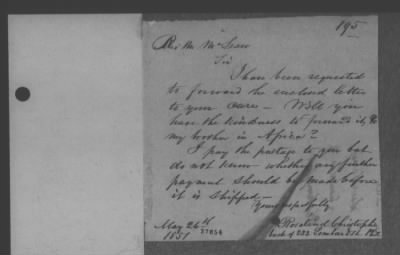 195
Rev Mr McLean
Sir
I have been requested
to forward the enclosed letter
to your care — Will you
have the kindness to forward it, to
my brother in Africa?
I pay the postage to you but
do not know whether any further
payment should be made before
it is shipped —
Yours respectfully
Rosalind Christophe
back of 232 Lombard St. Pha
May 26th
1851
27856